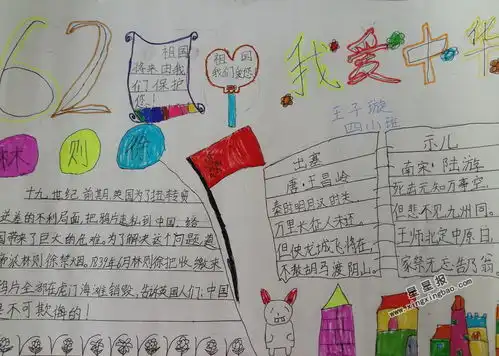 62
祖国
将来由我
们保护
您!
祖国
我们爱您
我爱中华
王子璇
四小班
林则徐
十九世纪前期,英国为了扭转贸
逆差的不利局面,把鸦片走私到中国,给
国带来了巨大的危难。为了解决这个问题,道
帝派林则徐禁烟。1839年6月林则徐把收缴来
鸦片全部在虎门海滩销毁,告诉英国人们:中国
是不可欺侮的!
出塞
唐·王昌龄
秦时明月汉时关,
万里长征人未还。
但使龙城飞将在,
不教胡马渡阴山。
示儿
南宋·陆游
死去元知万事空,
但悲不见九州同。
王师北定中原日,
家祭无忘告乃翁
星星报
www.xingxingbao.com